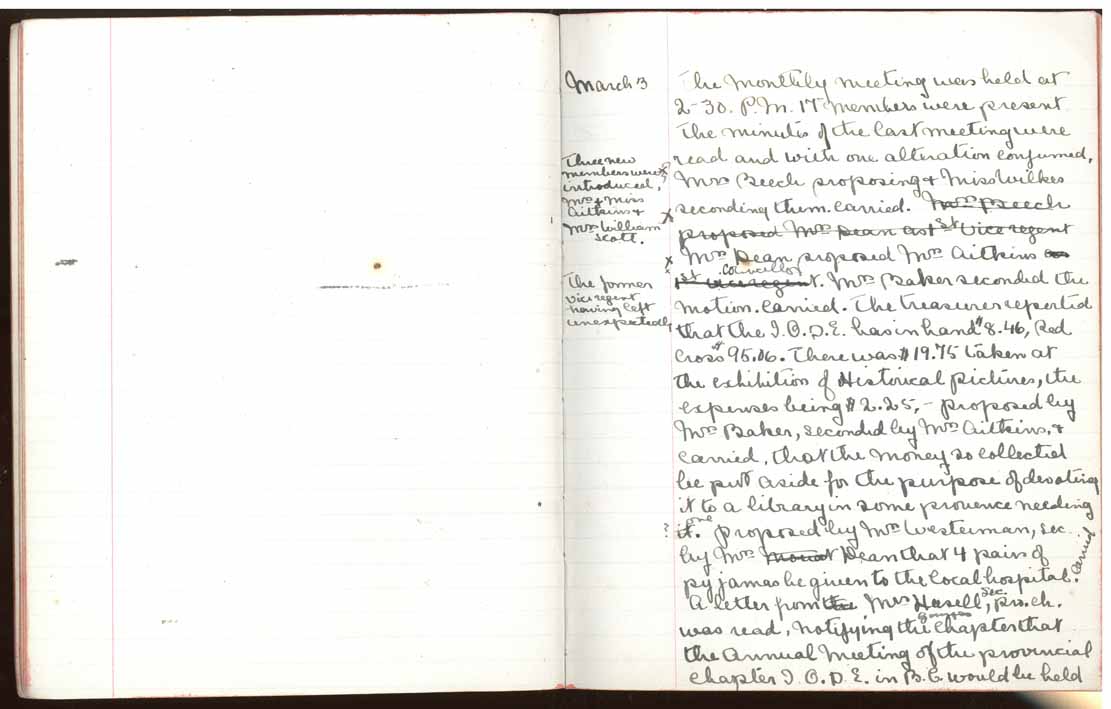 March 3
The Monthly meeting was held at
2-30. P.M. 17 members were present
The minutes of the last meeting were
Three new
members were x
introduced,
Mrs & Miss
Aitkins &
Mrs William
Scott.
read and with one alteration confirmed,
Mrs Beech proposing & Miss Wilkes
x seconding them. carried. Mrs Beech
proposed Mrs Dean as 1st Vice regent
x Mrs Dean proposed Mrs Aitkins as
councillor
1st vice regent. Mrs Baker seconded the
The former
vice regent
having left
unexpectedly
motion. carried. The treasurer reported
that the I.O.D.E. has in hand $8.46, Red
Cross $95.06. There was $19.75 taken at
the exhibition of Historical pictures, the
expenses being $2.25, – proposed by
Mrs Baker, seconded by Mrs Aitkins, &
carried, that the money so collected
be put aside for the purpose of devoting
it to a library in some provence needing
one
? it. Proposed by Mrs Westerman, sec.
by Mrs Dean that 4 pairs of
pyjamas be given to the local hospital. Carried
sec.
A letter from the Mrs Hasell, pro. ch.
Ganges
was read, notifying the Chapter that
the Annual Meeting of the provincial
Chapter I.O.D.E. in B.C. would be held